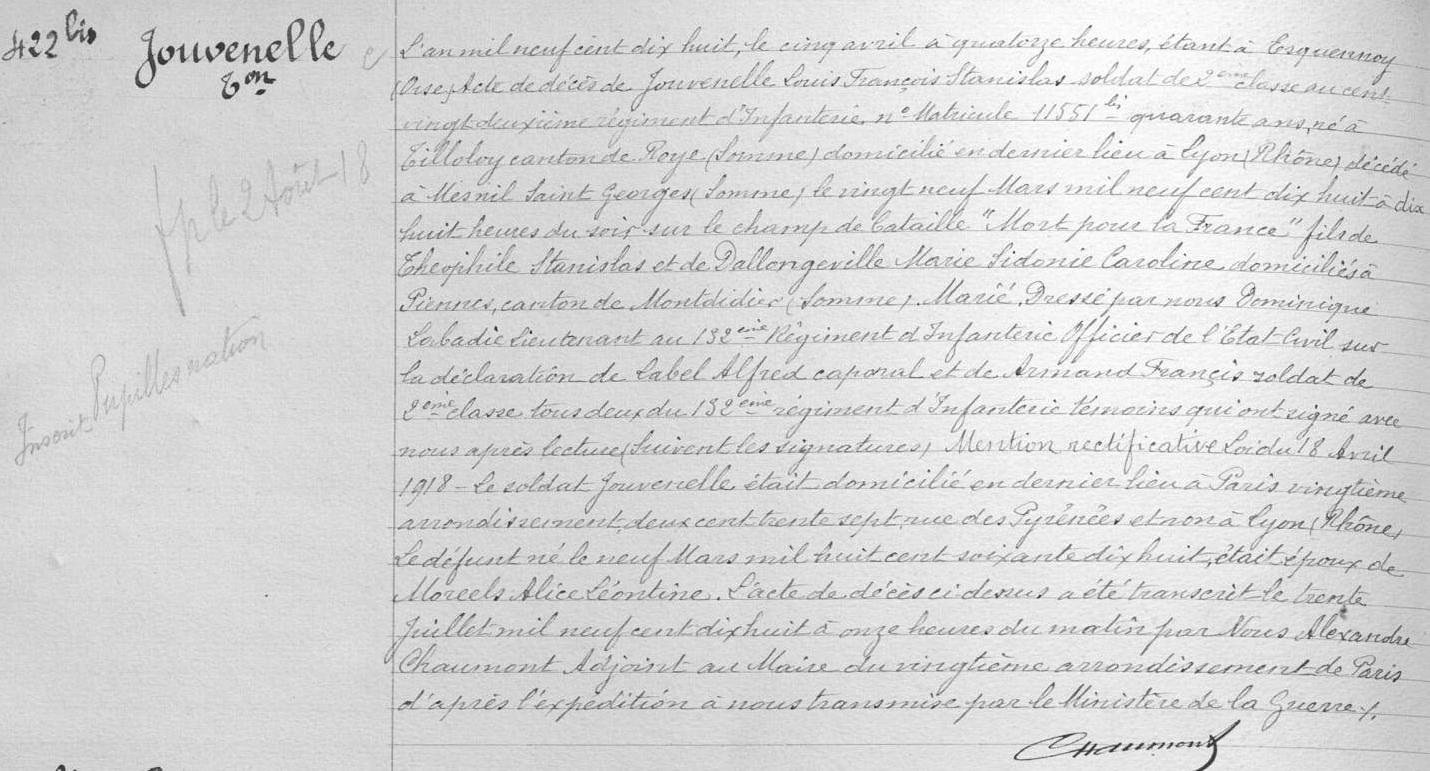 422 bis
Jouvenelle
Ton
fp le 2 Août 18
Inscrit Pupilles nation
L'an mil neuf cent dix huit, le cinq avril à quatorze heures, étant à Esquennoy
(Oise) Acte de décès de Jouvenelle Louis François Stanislas soldat de 2eme classe au cent-
vingt deuxième régiment d'Infanterie, no Matricule 11551 bis quarante ans, né à
Tilloloy canton de Roye (Somme) domicilié en dernier lieu à Lyon (Rhône) décédé
à Mesnil Saint Georges (Somme) le vingt neuf Mars mil neuf cent dix huit à dix
huit heures du soir sur le champ de bataille "Mort pour la France" fils de
Théophile Stanislas et de Dallongeville Marie Sidonie Caroline, domiciliés à
Piennes, canton de Montdidier (Somme). Marié. Dressé par nous Dominique
Labadie Lieutenant au 132eme Régiment d'Infanterie Officier de l'Etat-Civil sur
la déclaration de Label Alfred caporal et de Armand Francis soldat de
2eme classe tous deux du 132eme régiment d'Infanterie témoins qui ont signé avec
nous après lecture (Suivent les signatures) Mention rectificative Loi du 18 Avril
1918 - Le soldat Jouvenelle était domicilié en dernier lieu à Paris vingtième
arrondissement, deux cent trente sept, rue des Pyrénées et non à Lyon (Rhône)
Le défunt né le neuf Mars mil huit cent soixante dix huit, était époux de
Moreels Alice Léontine. L'acte de décès ci-dessus a été transcrit le trente
Juillet mil neuf cent dix huit à onze heures du matin par Nous Alexandre
Chaumont Adjoint au Maire du vingtième arrondissement de Paris
d'après l'expédition à nous transmise par le Ministère de la Guerre ./.
Chaumont